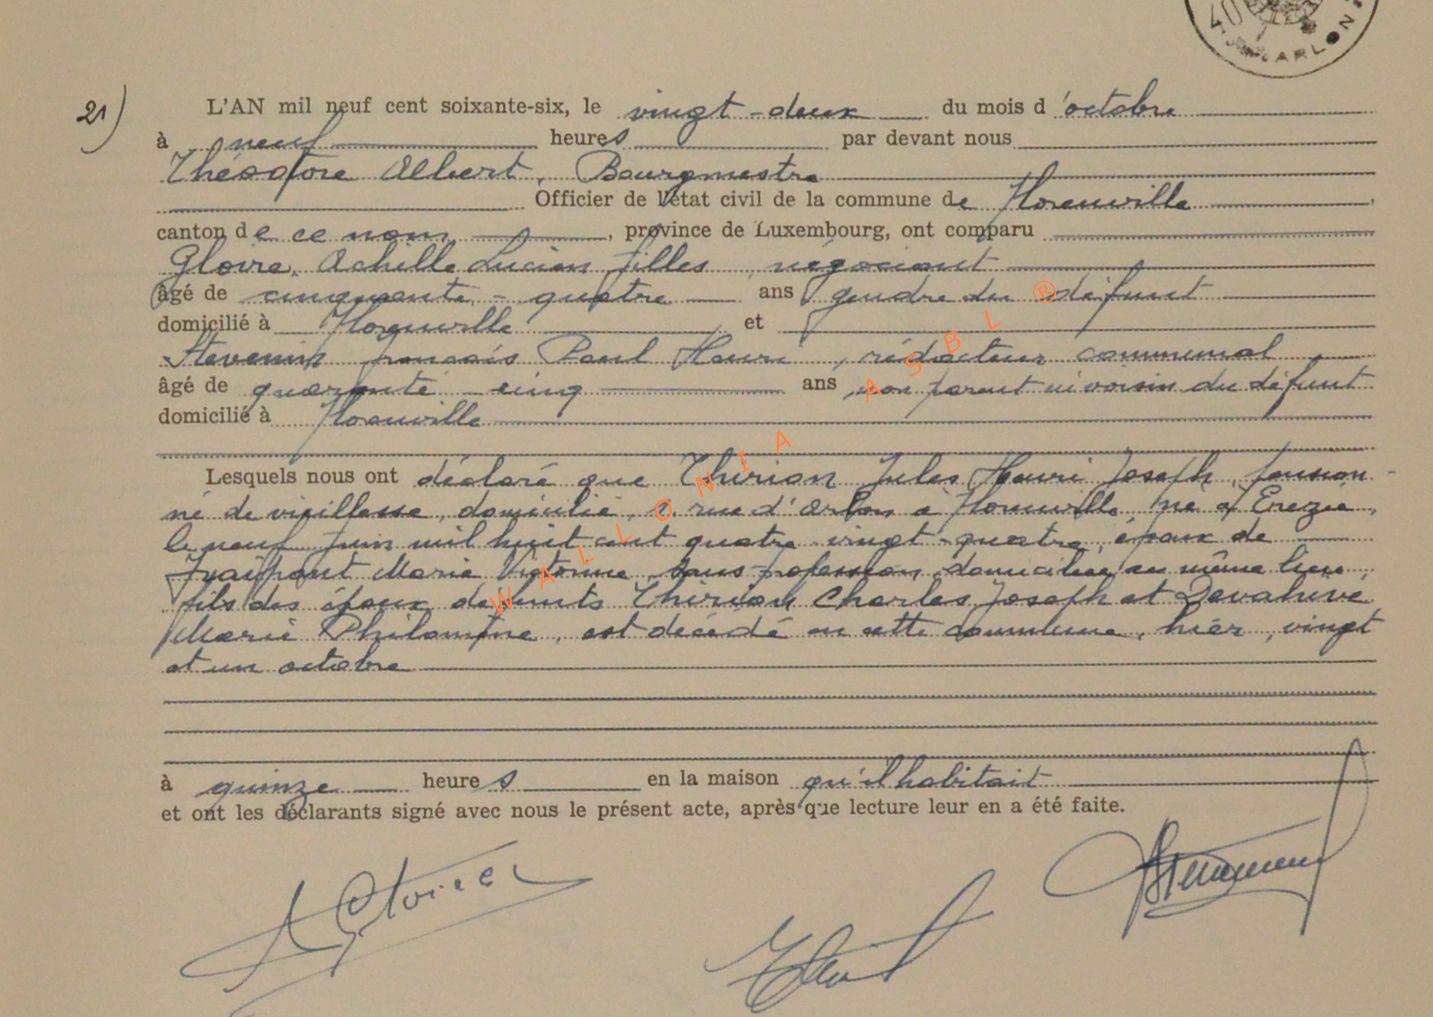 ARLON
21)
L'AN mil neuf cent soixante-six, le vingt-deux du mois d'octobre
à neuf heures par devant nous
Théodore Albert, Bourgmestre
Officier de l'état civil de la commune de Florenville,
canton de ce nom, province de Luxembourg, ont comparu
Gloire, Achille Lucien Jilles, négociant
âgé de cinquante-quatre ans gendre du défunt
domicilié à Florenville et
Stevenin François Paul Henri, rédacteur communal
âgé de quarante-cinq ans, non parent ni voisin du défunt
domicilié à Florenville
Lesquels nous ont déclaré que Thirion Jules Henri Joseph, pension-
né de vieillesse, domicilié, rue d'Arlon à Florenville, né à Erezée,
le neuf juin mil huit cent quatre-vingt-quatre, époux de
Fraipont Marie Victorine, sans profession, domiciliée au même lieu,
fils des époux défunts Thirion Charles Joseph et Devahive
Marie Philomène, est décédé en cette commune, hier, vingt
et un octobre
à quinze heures en la maison qu'il habitait
et ont les déclarants signé avec nous le présent acte, après que lecture leur en a été faite.
WALLONIA ASBL ®